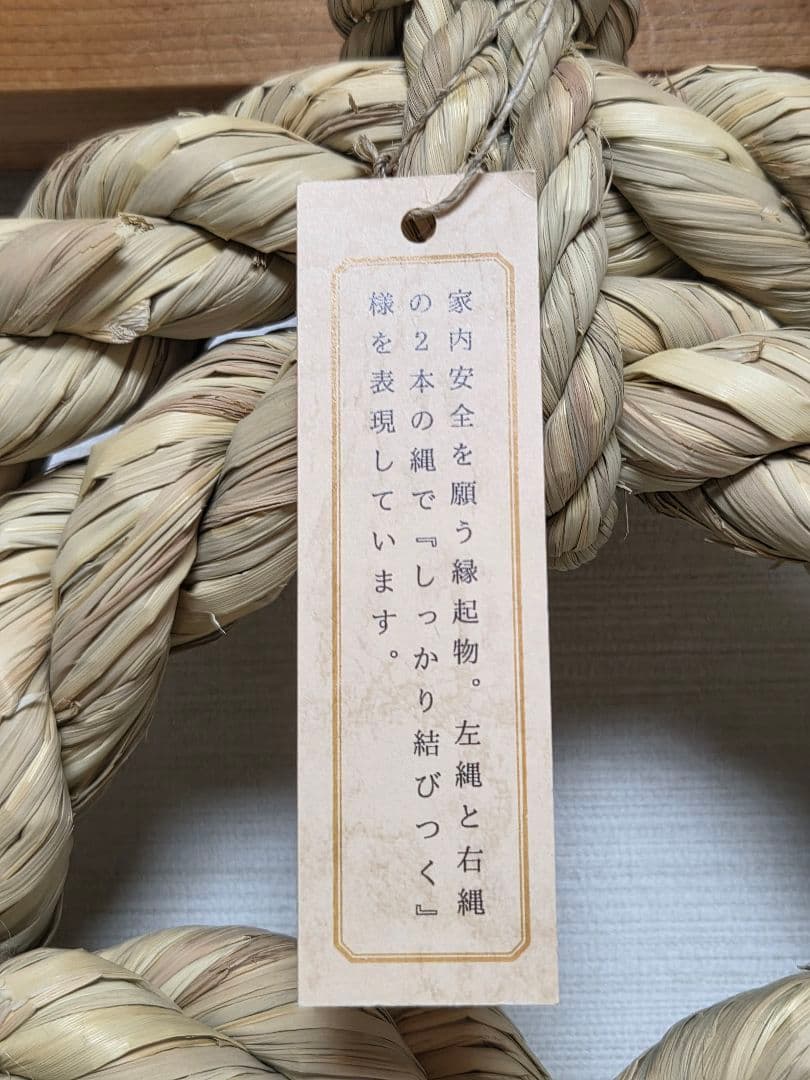 家内安全を願う縁起物。左縄と右縄
の2本の縄で『しっかり結びつく』
様を表現しています。